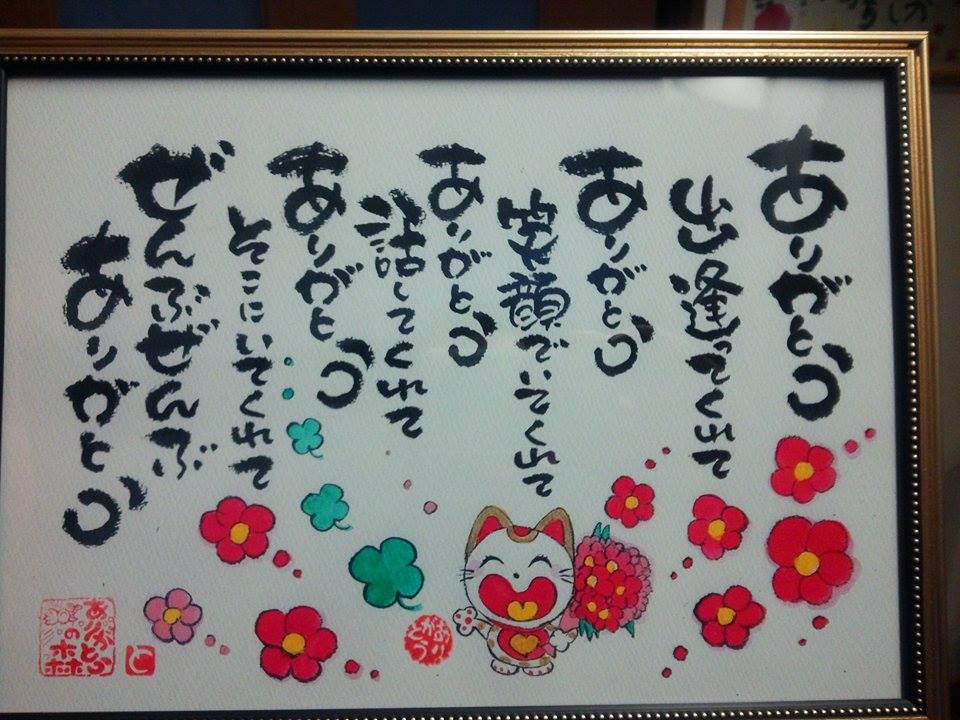 ありがとう
出逢ってくれて
ありがとう
笑顔でいてくれて
ありがとう
話してくれて
ありがとう
そこにいてくれて
ぜんぶぜんぶ
ありがとう
ありがとう
ありがとう
の森